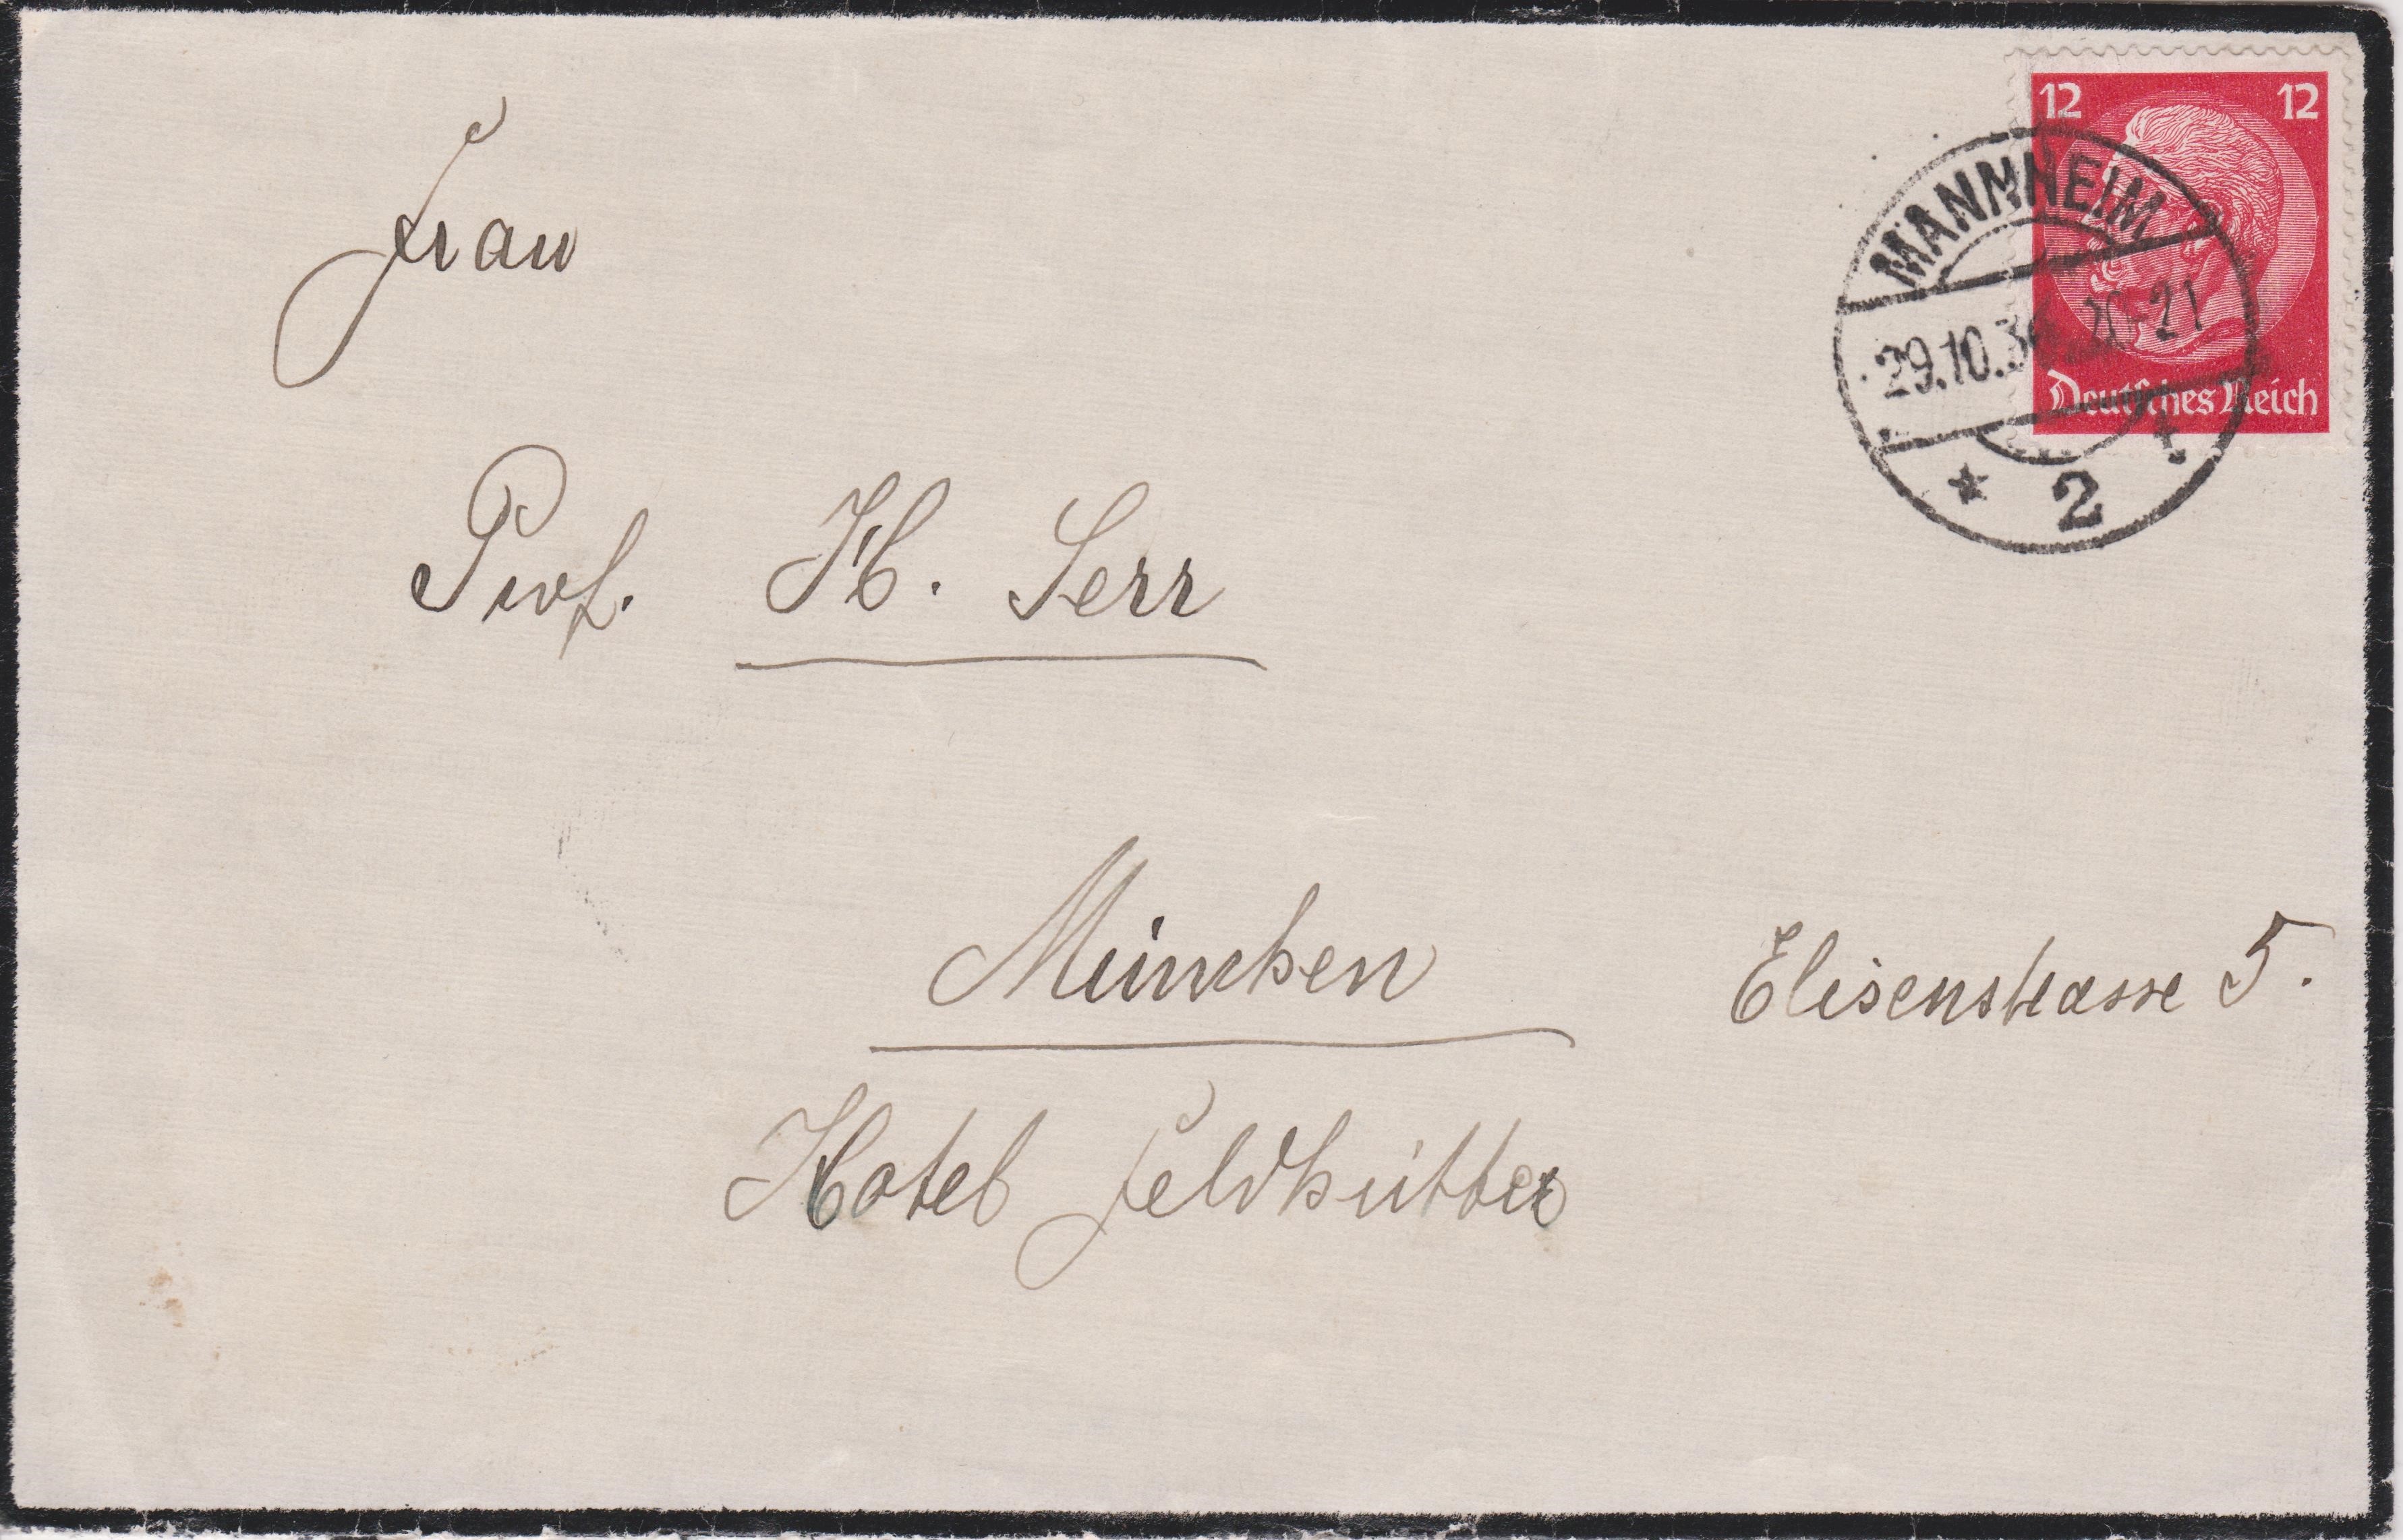 12 12
MANNHEIM
29.10.36. 20-21
Deutsches Reich
* 2 t
Frau
Prof. H. Serr
München Elisenstrasse 5.
Hotel Feldhütter